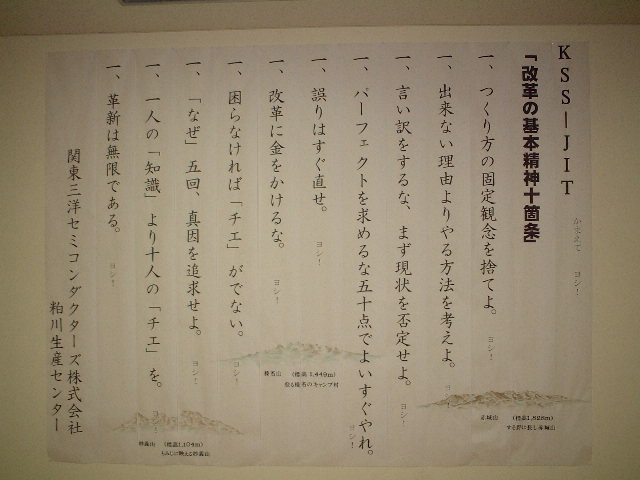 KSS―JIT
「改革の基本精神十箇条」
かまえて　ヨシ！
一、つくり方の固定観念を捨てよ。　ヨシ！
一、出来ない理由よりやる方法を考えよ。　ヨシ！
一、言い訳をするな、まず現状を否定せよ。　ヨシ！
一、パーフェクトを求めるな五十点でよいすぐやれ。　ヨシ！
一、誤りはすぐ直せ。　ヨシ！
一、改革に金をかけるな。　ヨシ！
一、困らなければ「チエ」がでない。　ヨシ！
一、「なぜ」五回、真因を追求せよ。　ヨシ！
一、一人の「知識」より十人の「チエ」を。　ヨシ！
一、革新は無限である。　ヨシ！
関東三洋セミコンダクターズ株式会社
粕川生産センター
赤城山　（標高1,828m）
すそ野は長し赤城山
榛名山　（標高1,449m）
登る榛名のキャンプ村
妙義山　（標高1,104m）
もみじに映える妙義山